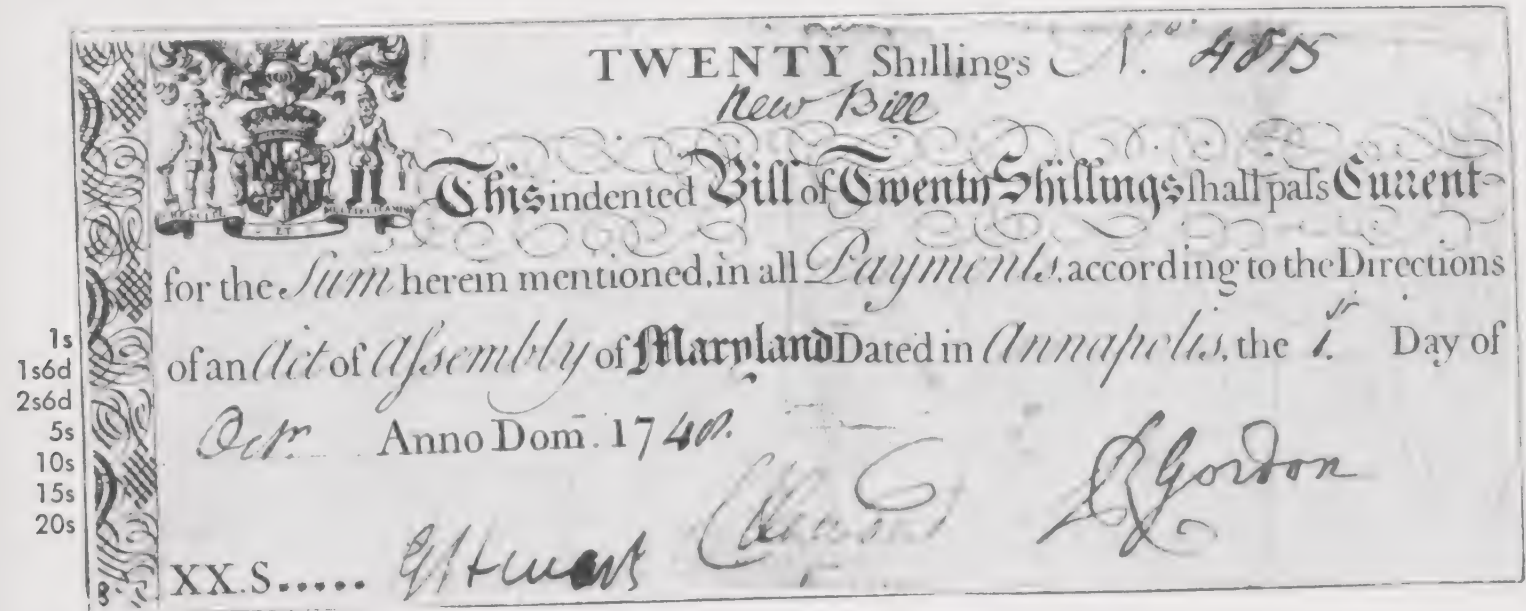 TWENTY Shillings No. 4815
New Bill
CRESCITE ET MULTIPLICAMINI
This indented Bill of Twenty Shillings shall pass Current
for the Sum herein mentioned, in all Payments, according to the Directions
of an Act of Assembly of Maryland Dated in Annapolis, the 1.st Day of
Octr. Anno Dom. 1748.
R Gordon
XX.S..... G Steuart
1s
1s6d
2s6d
5s
10s
15s
20s